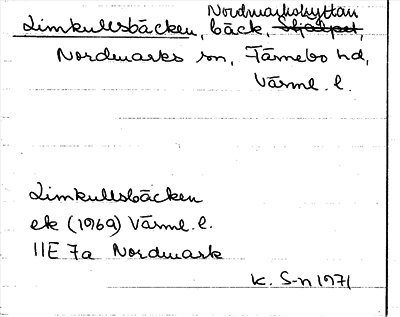 Nordmarkshyttan
Limkullsbäcken, bäck,
Nordmarks sn, Färnebo hd,
Värml. l.
Limkullsbäcken
ek (1969) Värml. l.
11E 7a Nordmark
K. S-n 1971